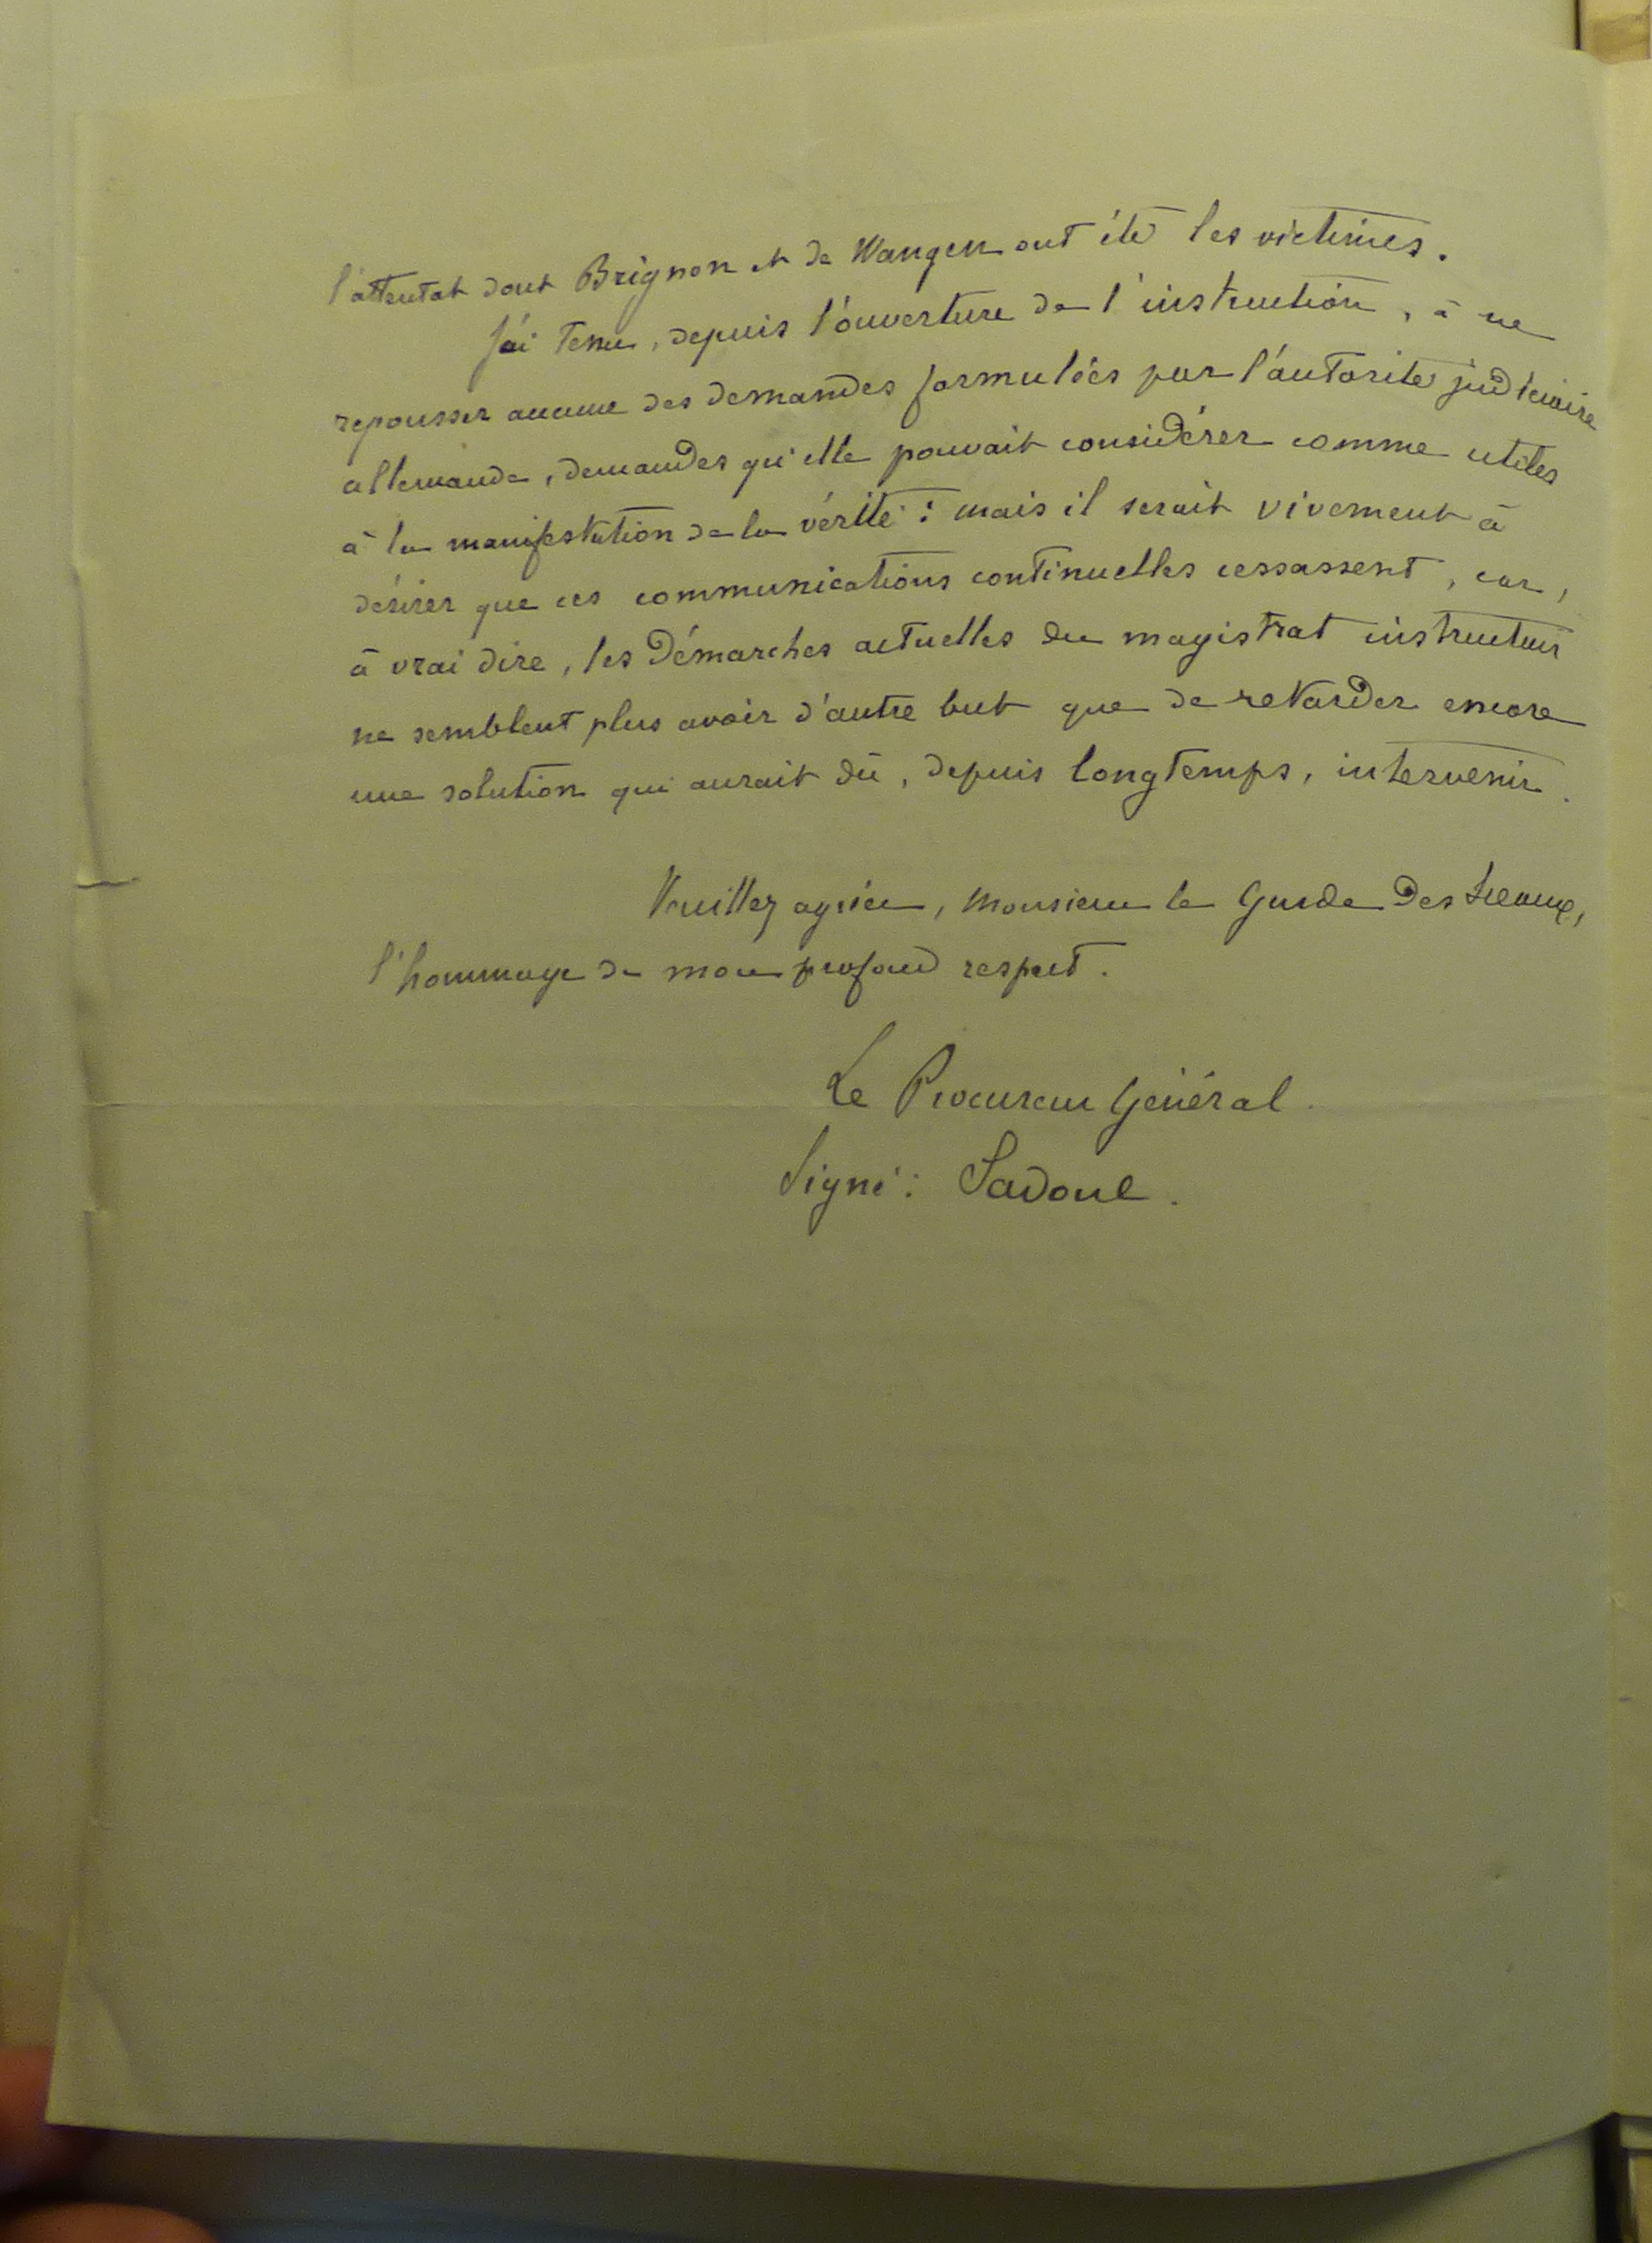 l'attentat dont Brignon et de Wangen ont été les victimes.
J'ai tenu, depuis l'ouverture de l'instruction, à ne
repousser aucune des demandes formulées par l'autorité judiciaire
allemande, demandes qu'elle pouvait considérer comme utiles
à la manifestation de la vérité : mais il serait vivement à
désirer que ces communications continuelles cessassent, car,
à vrai dire, les démarches actuelles du magistrat instructeur
ne semblent plus avoir d'autre but que de retarder encore
une solution qui aurait dû, depuis longtemps, intervenir.
Veuillez agréer, Monsieur le Garde des Sceaux,
l'hommage de mon profond respect.
Le Procureur Général
Signé : Sadoul.